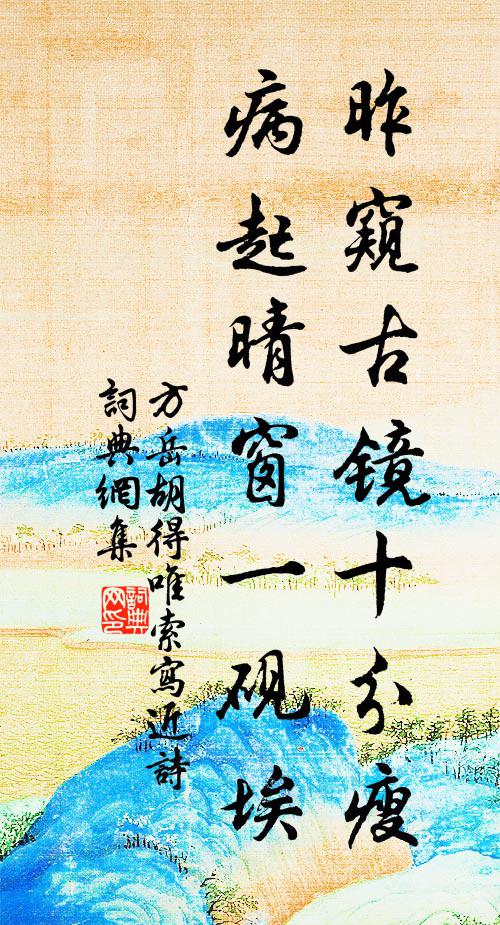 昨窺古镜十分瘦
病起晴窗一硯埃
方岳胡得唯索寫近詩
詞典網集
詞典
网印